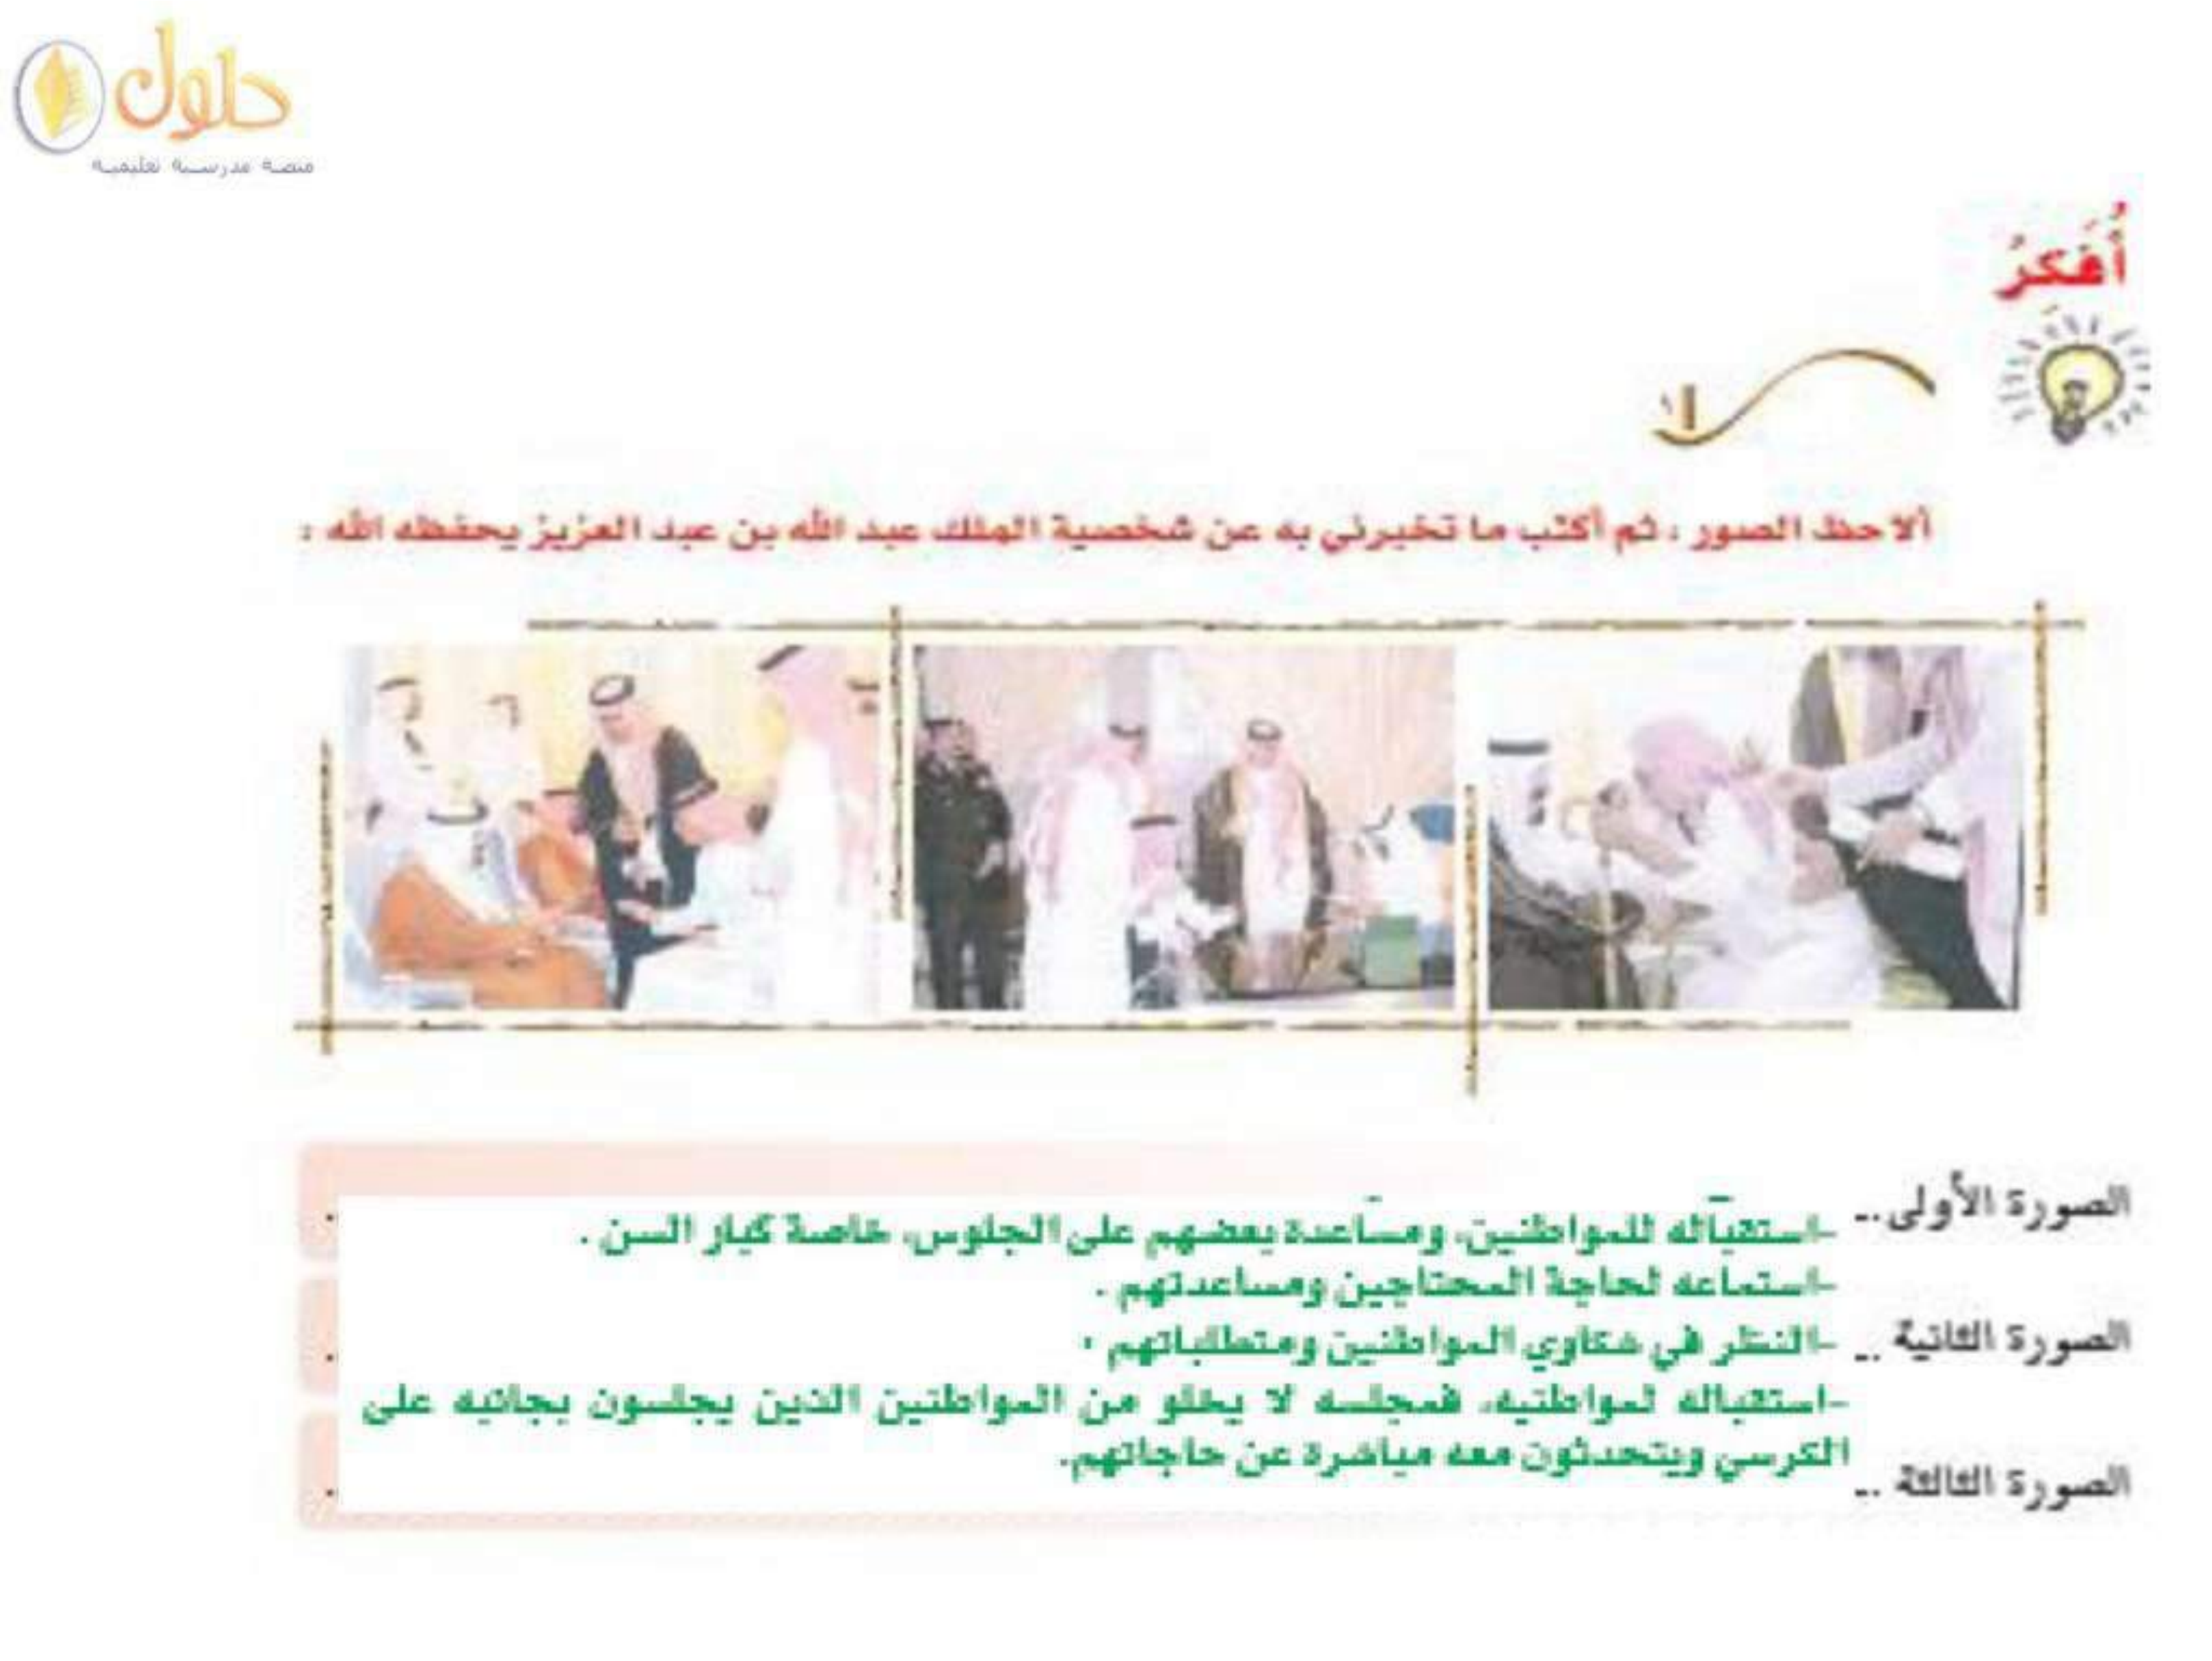 حلول
منصة مدرسية تعليمية
أُفَكِّرُ
ألاحظ الصور ، ثم أكتب ما تخبرني به عن شخصية الملك عبد الله بن عبد العزيز يحفظه الله :
الصورة الأولى ..
-استقباله للمواطنين، ومساعدة بعضهم على الجلوس، خاصة كبار السن .
-استماعه لحاجة المحتاجين ومساعدتهم .
الصورة الثانية ..
-النظر في شكاوي المواطنين ومتطلباتهم .
-استقباله لمواطنيه، فمجلسه لا يخلو من المواطنين الذين يجلسون بجانبه على
الكرسي ويتحدثون معه مباشرة عن حاجاتهم.
الصورة الثالثة ..